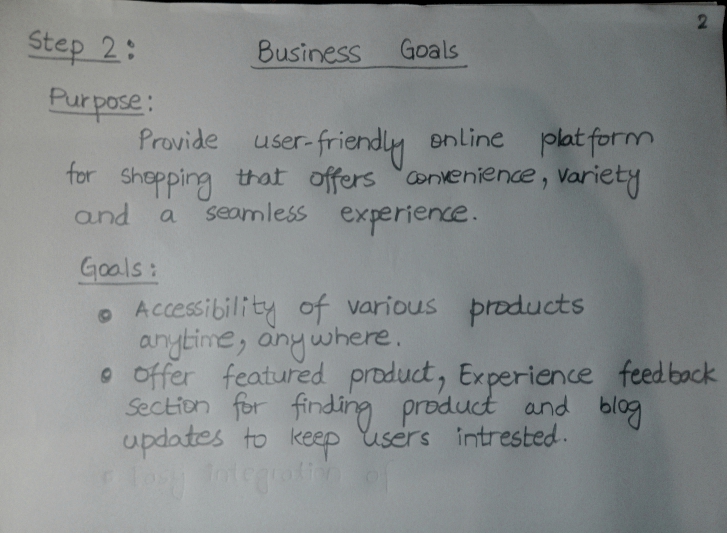 2
Step 2:
Business Goals
Purpose:
Provide user-friendly online platform
for shopping that offers convenience, variety
and a seamless experience.
Goals:
• Accessibility of various products
anytime, anywhere.
• Offer featured product, Experience feedback
section for finding product and blog
updates to keep users intrested.
integration of